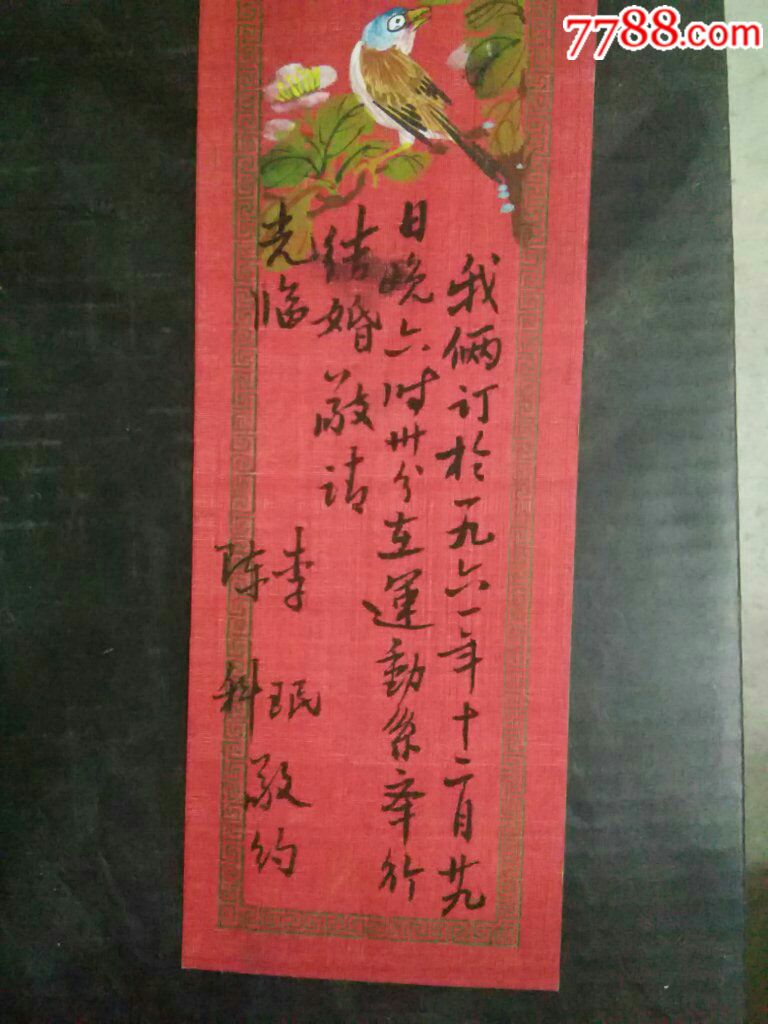 7788.com
我俩订於一九六一年十二月廿九
日晚六时卅分在運動系举行
结婚敬请
光临
李珉
陈科
敬约